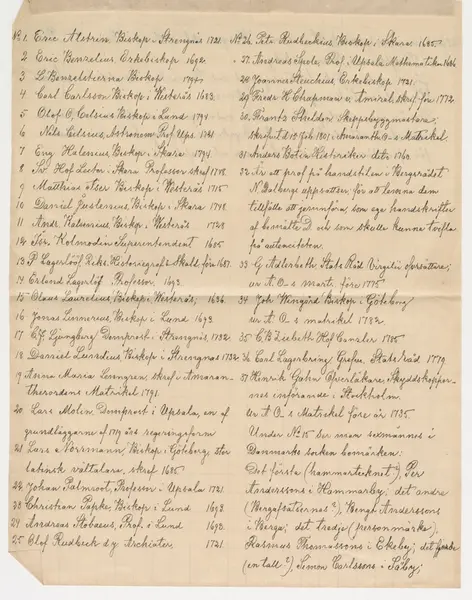 No 1 Eric Alstrin, Biskop i Strengnäs 1721.
2 Eric Benzelius Erkebiskop 1692.
3 L Benzelstierna Biskop 1794.
4 Carl Carlsson Biskop i Westerås 1683.
5 Olof O, Celsius Biskop i Lund 1794
6 Nils Celsius, Astronom Prof Ups. 1721
7 Eng Halenius Biskop i Skara 1794
8 Sv. Hof Lector i Skara Professor skref 1748.
9 Matthias Biskop i Westerås 1715
10 Daniel Juslenius Biskop i Skara 1748.
11 Andr. Kalsenius Biskop i Westerås 1728
12 Isr. Kolmodin Superintendent 1685
13 P. Lagerlöf Riks Historiograf o Skald före 1687.
14 Erland Lagerlöf. Professor, 1693.
15 Olaus Laurelius, Biskop i Westerås, 1636.
16 Jonas Linnerius, Biskop i Lund 1693
17 Ljungberg Domprost i Strengnäs, 1732.
18 Daniel Lundius, Biskop i Strengnäs 1732
19 Anna Maria Lenngren, skref i Amaran-
therordens Matrikel 1791.
20 Lars Molin, Domprost i Upsala, en af
grundläggarne af 1719 års regeringsform
21 Lars Norrmann, Biskop i Göteborg, stor
latinsk vältalare, skref 1685
22 Johan Palmroot, Professor i Upsala 1721.
23 Christian Papke, Biskop i Lund 1693
24 Andreas Stobaeus, Prof. i Lund 1693.
25 Olof Rudbeck d.y Archiater, 1721.
No 26. Petr Rudbeckius Biskop i Skara 1685.
27. Andreas Spole, Prof Upsala Mathematiker 1686
28 Joannes Steuchius Erkebiskop 1721.
29 Fredr H Chapman v Amiral, skrif för 1772
30 Frantz Sheldon Skeppsbyggmästare
skrift d 15 Jul. 1801 i Amaranth O-s Matrikel
31 Anders Botin Historiker dito 1760.
32 är ett prof på handstilen i Bergsrådet
N. Dalberg uppsatser, för att lemna dem
tillfälle att jemnföra, som ega handskrifter
af bemälte D. och som skulle kunna träffa
på autencitoten.
33 G Adlerbeth Stats Råd Virgilii öfversättare,
ur A. O-s matr. före 1775
34 Joh Wingård Biskop i Göteborg
ur A O-s matrikel 1782.
35 C B Zibeth Hof Canzler 1785
36 Carl Lagerbring, Grefve, Statsråd 1779
37 Henrik Gahn Öfverläkare, Skyddskoppor-
nes införande i Stockholm.
ur A O-s Matrikel före år 1785.
Under No 15 ser man sexmännes i
Danmarks socken bomärken:
Det första (hammartecknet?), Per
Anderssons i Hammarby; det andre
Bengt Anderssons
i Berga; det tredje (personmärke),
Rasmus Thomassons i Ekeby; det fjerde
(en tall?), Simon Carlssons i Säby;